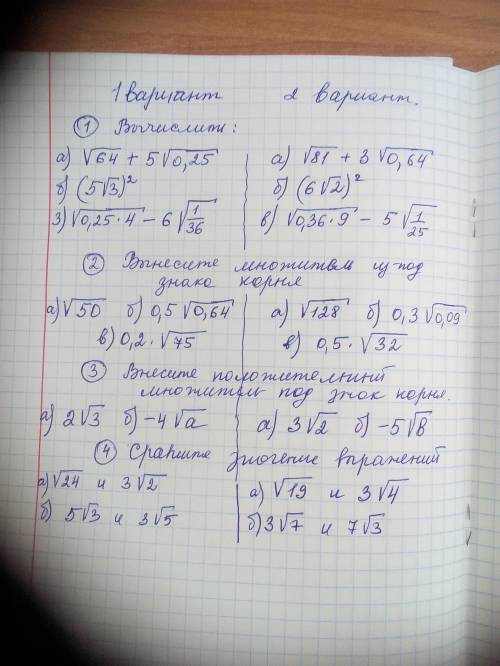 1 Вариант 2 Вариант.
① Вычислить:
а) √64 + 5√0,25 а) √81 + 3√0,64
б) (5√3)² б) (6√2)²
3) √0,25·4 − 6√1/36 в) √0,36·9 − 5√1/25
② Вынесите множитель из-под
знака корня
а) √50 б) 0,5√0,64 а) √128 б) 0,3√0,09
в) 0,2·√75 в) 0,5·√32
③ Внесите положительный
множитель под знак корня.
а) 2√3 б) −4√a а) 3√2 б) −5√b
④ Сравните значение выражений
а) √24 и 3√2 а) √19 и 3√4
б) 5√3 и 3√5 б) 3√7 и 7√3